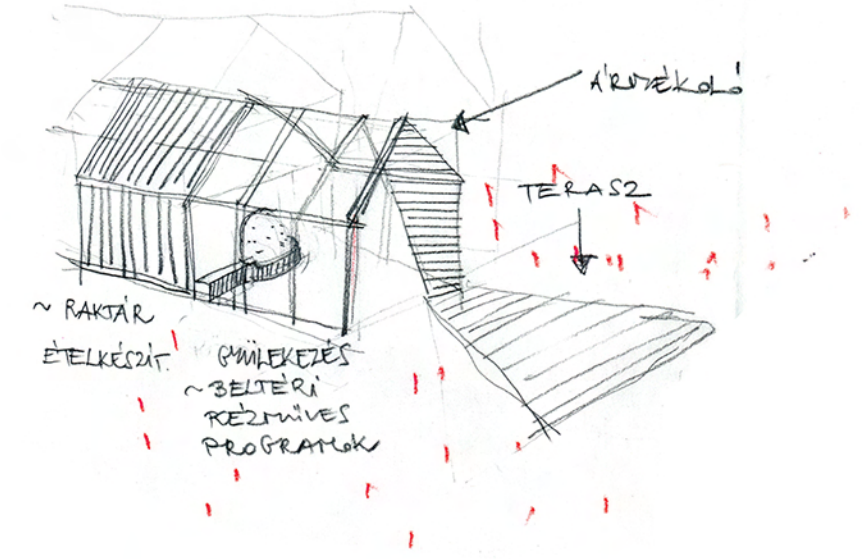 ÁRNYÉKOLÓ
TERASZ
~ RAKTÁR
ÉTELKÉSZÍT.
GYÜLEKEZÉS
~ BELTÉRI
KÉZMŰVES
PROGRAMOK